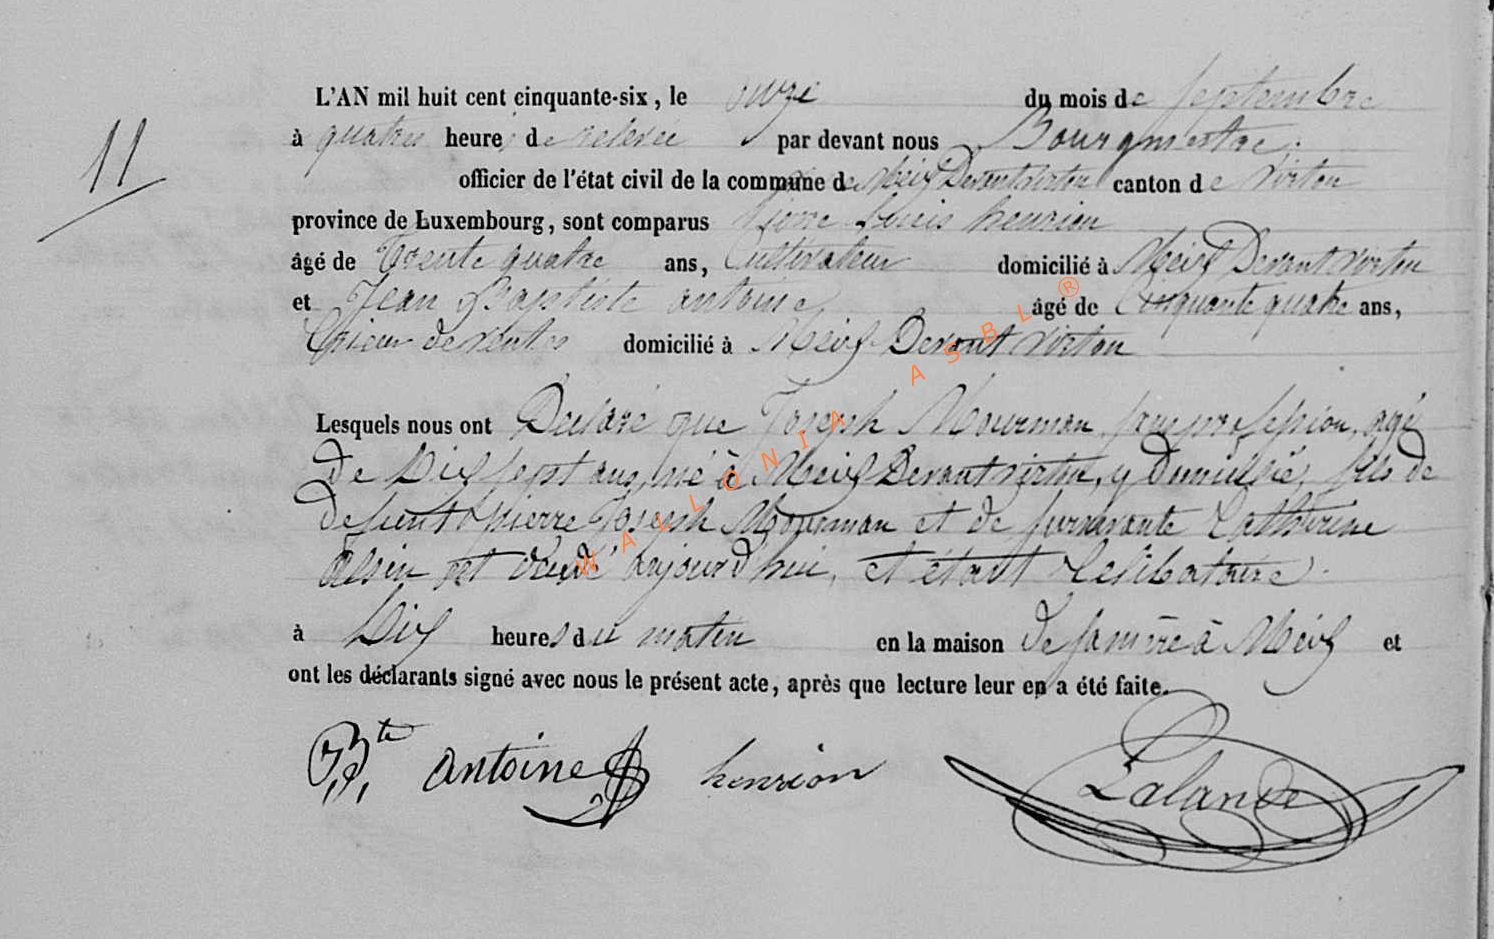 11
L'AN mil huit cent cinquante-six, le onze du mois de septembre
à quatre heures de relevée par devant nous Bourgmestre
officier de l'état civil de la commune de Meix Devant virton canton de virton
province de Luxembourg, sont comparus pierre Louis henrion
âgé de Trente quatre ans, Cultivateur domicilié à Meix Devant virton
et Jean Baptiste antoine âgé de Cinquante quatre ans,
Crieur de ventes domicilié à Meix Devant virton
Lesquels nous ont Declaré que Joseph Mourman, sans profession, agé
de Dix sept ans, né à Meix Devant virton, y domicilié, fils de
defunt pierre Joseph Mourman et de survivante Catherine
est décédé aujourd'hui, et étant Celibataire.
à Dix heures du matin en la maison de sa mère à Meix et
ont les déclarants signé avec nous le présent acte, après que lecture leur en a été faite.
J. Bte antoine henrion Lalande
WALLONIA ASBL ®